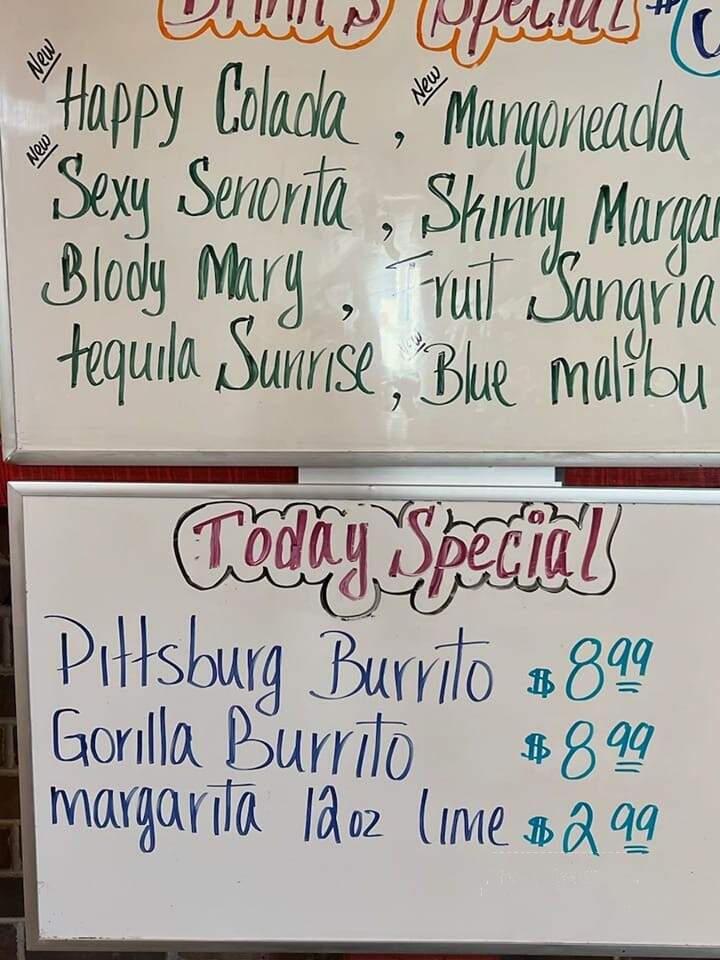 Drink's Special #
New Happy Colada , New Mangoneada
New Sexy Senorita , Skinny Margar
Blody Mary , Fruit Sangria
tequila Sunrise , New Blue malibu
Today Special
Pittsburg Burrito $8.99
Gorilla Burrito $8.99
margarita 12oz lime $2.99